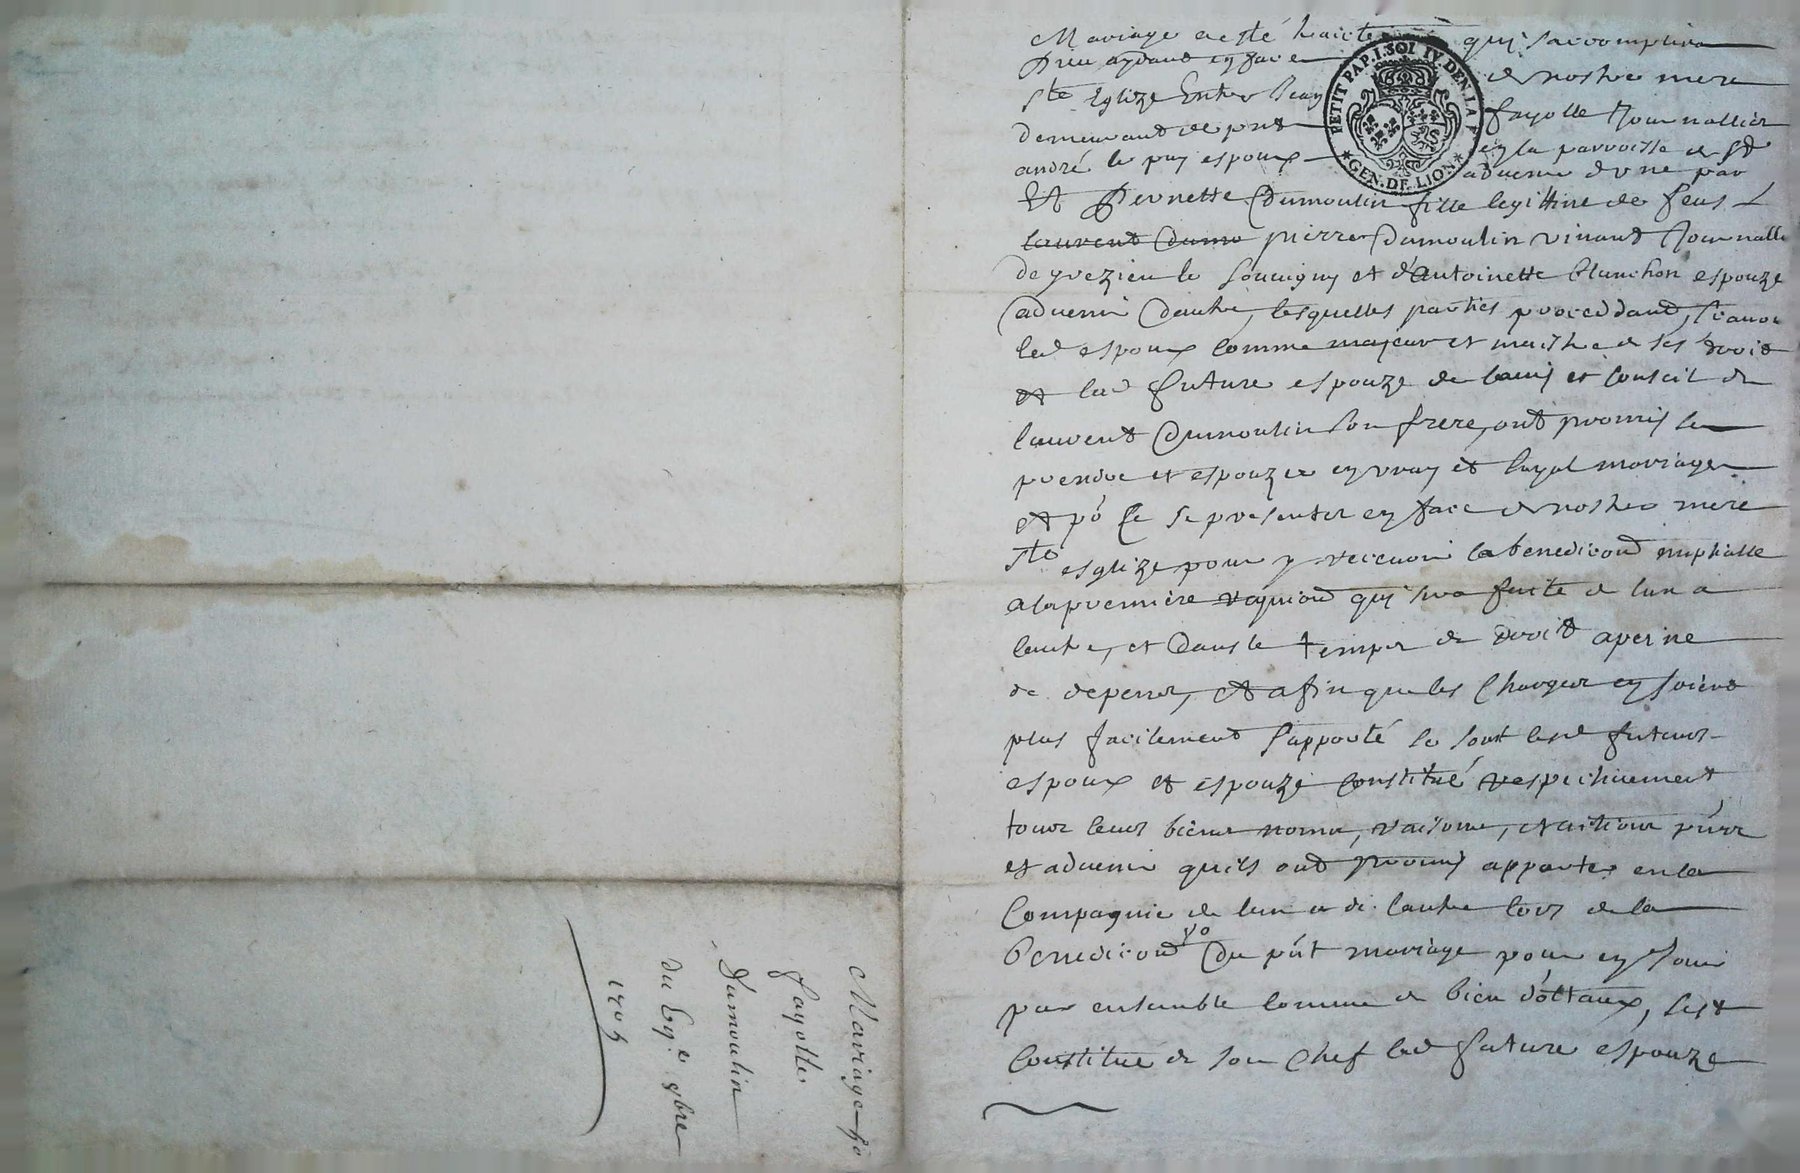 Mariage a esté traicté qui saccomplira
Dieu aydant en face de nostre mere
Ste Eglize Entre Jean fayolle Journallier
demeurant de pnt en la parroisse de St
andré le puy espoux aduenir dune par
Et Pernette Dumoulin fille legittime de feus
laurent Dumo pierre Dumoulin vivant Journalli
de et d'Antoinette blanchon espouze
aduenir dautre, lesquelles parties proceddant, scauoi
led espoux comme majeur et maistre de ses droit
et lad future espouze de lauis et conseil de
laurent Dumoulin son frere, ont promis se
prendre et espouzer en vray et loyal mariage
et po Ce se presenter en face de nostre mere
Ste esglize pour y receuoir la benediction nuptialle
a la premiere requion qui sera faite de lun a
lautre, et dans le temps de droit a peine
de depens, et afin que les Charges en soient
plus facilement supporté se sont lesd futurs
espoux et espouze constitué respectiuement
tous leurs biens noms, raisons, et actions pnts
et aduenir quils ont promis apporter en la
Compagnie de lun a de lautre lors de la
benediction du pnt mariage pour en Jouir
par ensemble comme de bien dottaux, sest
Constitué de son Chef lad future espouze
PETIT PAP. I. SOL IV DEN. LA F
GEN. DE LION
Mariage po
fayolle
Dumoulin
du 9bre